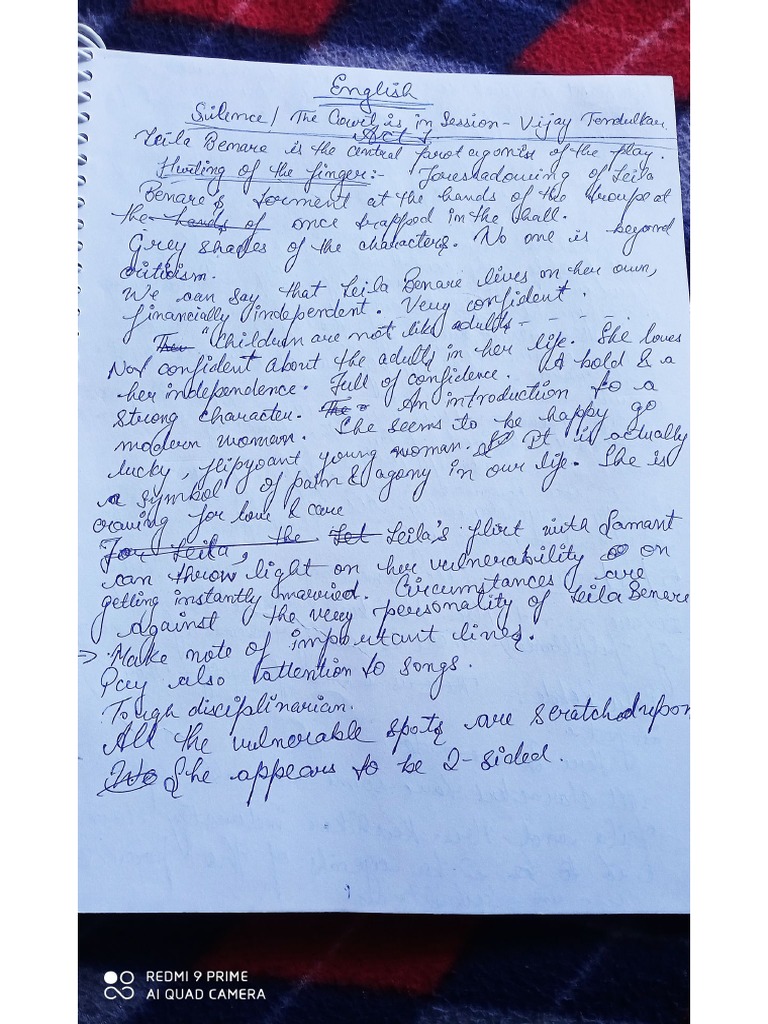 English
Silence! The Court is in Session - Vijay Tendulkar.
Act 1
Leila Benare is the central protagonist of the play.
Hurting of the finger:- Foreshadowing of Leila
Benare's torment at the hands of the troupe at
the hands of once trapped in the hall.
Grey shades of the characters. No one is beyond
criticism.
We can say that Leila Benare lives on her own,
financially independent. Very confident.
The "Children are not like adults - - - - -
Not confident about the adults in her life. She loves
her independence. Full of confidence. A bold & a
strong character. The An introduction to a
modern woman. She seems to be happy go
lucky, flipyoant young woman. It is actually
a symbol of pain & agony in our life. She is
craving for love & care
For Leila, the Let Leila's flirt with Samant
can throw light on her vulnerability on
getting instantly married. Circumstances are
against the very personality of Leila Benare
⇒ Make note of important lines.
Pay also attention to songs.
Tough disciplinarian.
All the vulnerable spots are scratched upon
She appears to be 2-sided.
1
REDMI 9 PRIME
AI QUAD CAMERA